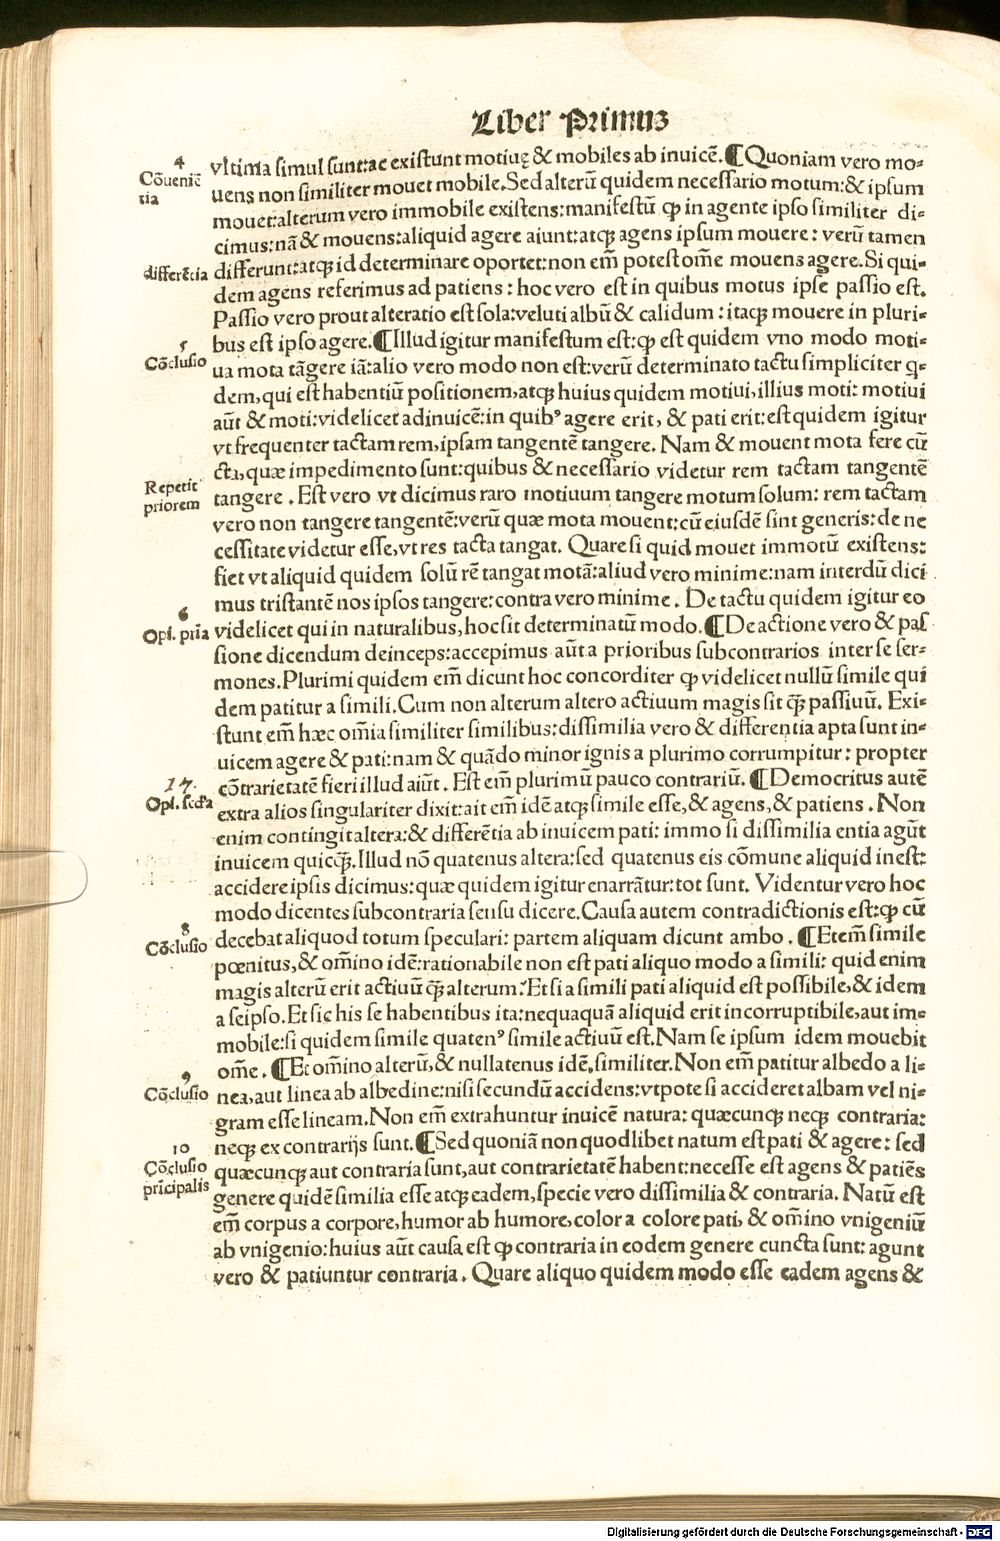 Liber Primus
4
Cōueniē
tia
vltima simul sunt:ac existunt motiuę & mobiles ab inuicē.¶Quoniam vero mo-
uens non similiter mouet mobile.Sed alterū quidem necessario motum:& ipsum
mouet:alterum vero immobile existens:manifestū ꝙ in agente ipso similiter di-
cimus:nā & mouens:aliquid agere aiunt:atqꝫ agens ipsum mouere: verū tamen
differētia
differunt:atqꝫ id determinare oportet:non em̄ potest om̄e mouens agere.Si qui-
dem agens referimus ad patiens: hoc vero est in quibus motus ipse passio est.
Passio vero prout alteratio est sola:veluti albū & calidum: itaqꝫ mouere in pluri-
5
Cōclusio
bus est ipso agere.¶Illud igitur manifestum est:ꝙ est quidem vno modo moti-
ua mota tāgere iā:alio vero modo non est:verū determinato tactu simpliciter q-
dem,qui est habentiū positionem,atqꝫ huius quidem motiui,illius moti: motiui
aūt & moti:videlicet adinuicē:in quibꝰ agere erit, & pati erit:est quidem igitur
vt frequenter tactam rem,ipsam tangentē tangere. Nam & mouent mota fere cū
cta,quæ impedimento sunt:quibus & necessario videtur rem tactam tangentē
Repetit
priorem
tangere . Est vero vt dicimus raro motiuum tangere motum solum: rem tactam
vero non tangere tangentē:verū quæ mota mouent:cū eiusdē sint generis:de ne
cessitate videtur esse,vt res tacta tangat. Quare si quid mouet immotū existens:
fiet vt aliquid quidem solū rē tangat motā:aliud vero minime:nam interdū dici
mus tristantē nos ipsos tangere:contra vero minime . De tactu quidem igitur eo
6
Opī. prīa
videlicet qui in naturalibus,hoc sit determinatū modo.¶De actione vero & pas
sione dicendum deinceps:accepimus aūt a prioribus subcontrarios inter se ser-
mones.Plurimi quidem em̄ dicunt hoc concorditer ꝙ videlicet nullū simile qui
dem patitur a simili.Cum non alterum altero actiuum magis sit q̄ꝫ passiuū. Exi-
stunt em̄ hæc om̄ia similiter similibus:dissimilia vero & differentia apta sunt in-
uicem agere & pati:nam & quādo minor ignis a plurimo corrumpitur: propter
17.
Opī. secda
cōtrarietatē fieri illud aiūt . Est em̄ plurimū pauco contrariū. ¶Democritus autē
extra alios singulariter dixit:ait em̄ idē atqꝫ simile esse,& agens,& patiens . Non
enim contingit altera:& differētia ab inuicem pati: immo si dissimilia entia agūt
inuicem quicq̄ꝫ.Illud nō quatenus altera:sed quatenus eis cōmune aliquid inest:
accidere ipsis dicimus:quæ quidem igitur enarrātur:tot sunt. Videntur vero hoc
modo dicentes subcontraria sensu dicere.Causa autem contradictionis est:ꝙ cū
8
Cōclusio
decebat aliquod totum speculari: partem aliquam dicunt ambo . ¶Etem̄ simile
pœnitus,& om̄ino idē:rationabile non est pati aliquo modo a simili: quid enim
magis alterū erit actiuū q̄ꝫ alterum? Et si a simili pati aliquid est possibile,& idem
a seipso.Et sic his se habentibus ita:nequaquā aliquid erit incorruptibile,aut im-
mobile:si quidem simile quatenꝰ simile actiuū est.Nam se ipsum idem mouebit
9
Cōclusio
om̄e . ¶Et om̄ino alterū,& nullatenus idē,similiter.Non em̄ patitur albedo a li-
nea,aut linea ab albedine:nisi secundū accidens:vtpote si accideret albam vel ni-
gram esse lineam.Non em̄ extrahuntur inuicē natura: quæcunqꝫ neqꝫ contraria:
10
Cōclusio
prīcipalis
neqꝫ ex contrarijs sunt.¶Sed quoniā non quodlibet natum est pati & agere: sed
quæcunqꝫ aut contraria sunt,aut contrarietatē habent:necesse est agens & patiēs
genere quidē similia esse atqꝫ eadem,specie vero dissimilia & contraria. Natū est
em̄ corpus a corpore,humor ab humore,color a colore pati, & om̄ino vnigeniū
ab vnigenio:huius aūt causa est ꝙ contraria in eodem genere cuncta sunt: agunt
vero & patiuntur contraria . Quare aliquo quidem modo esse eadem agens &
Digitalisierung gefördert durch die Deutsche Forschungsgemeinschaft - DFG